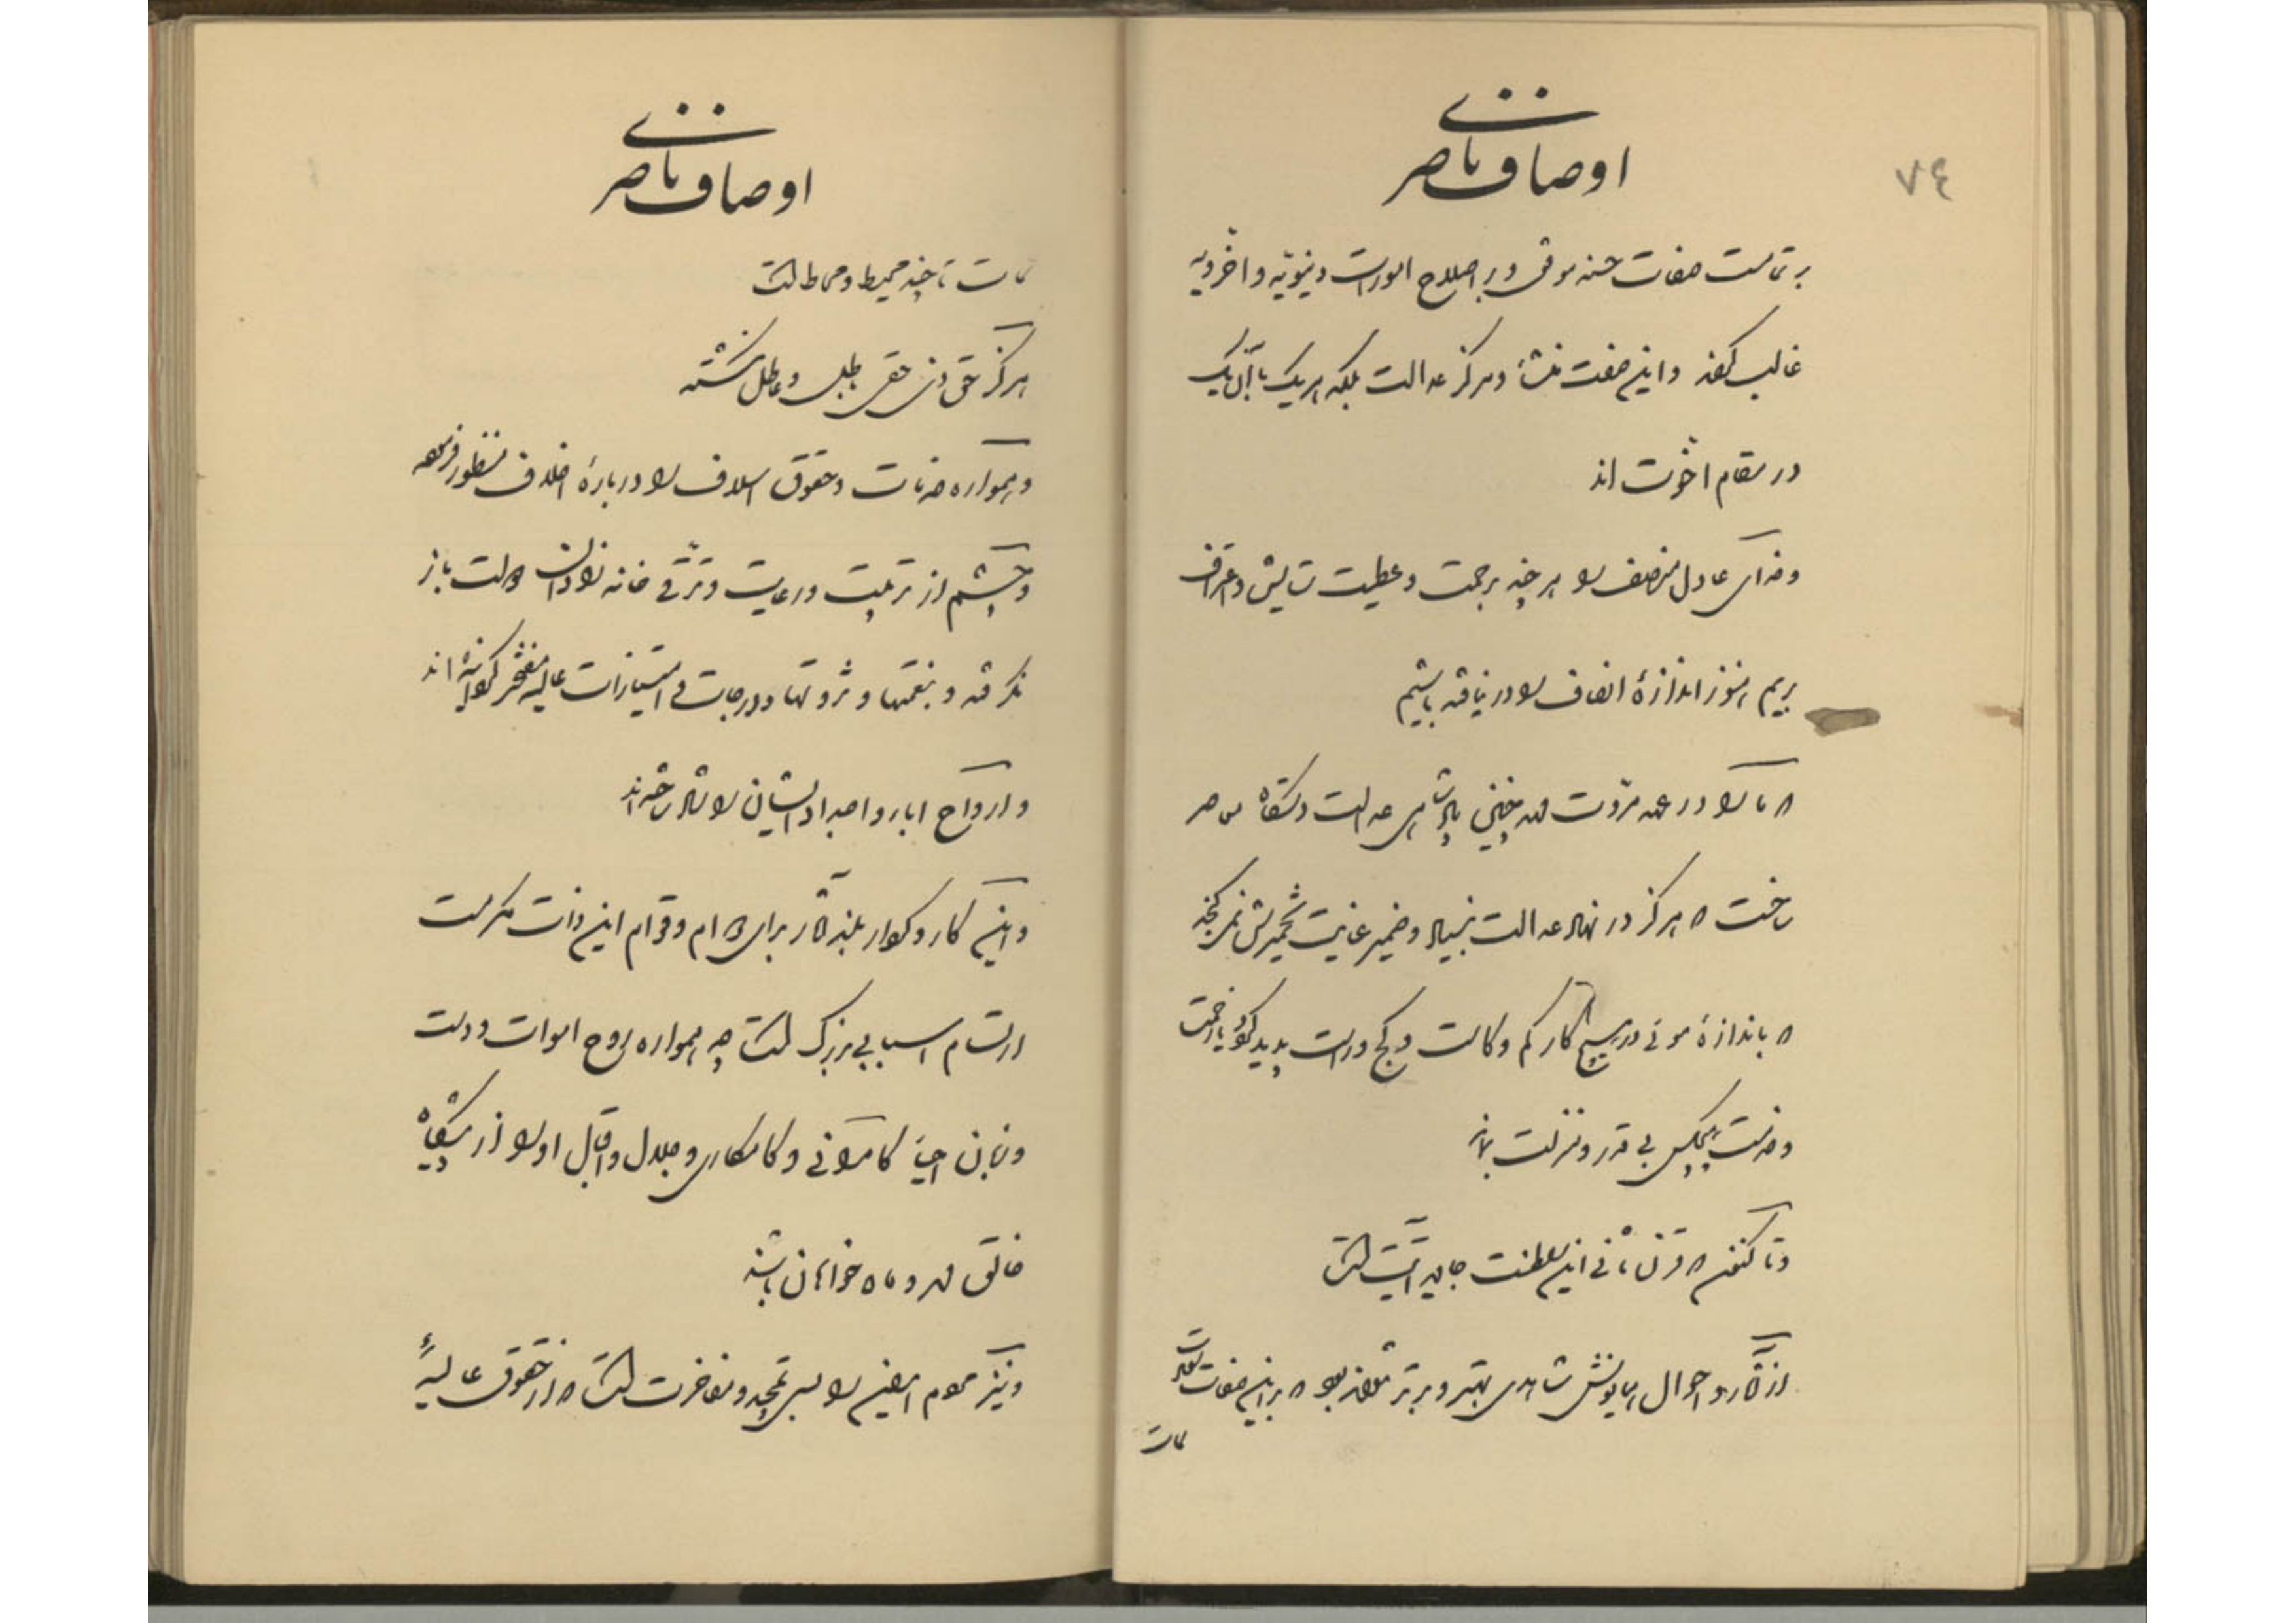 ۷٤
اوصاف ناصری
بر تمامت صفات حسنه موقی و بر اصلاح امورات دنیویّه و اخرویّه
غالب کفه و این صفت منشأ و مرکز عدالت بلکه هر یک با آن یک
در مقام اخوّت اند
و خدای عادل منصف را هر چند بر رحمت و عطیت ستایش و اعتراف
بریم هنوز اندازهٔ انصاف را در نیافته باشیم
که ما را در عهد مروّت مهد چنین پادشاهی عدالت دستگاه معاصر
ساخت که هرگز در نهاد عدالت بنیاد و ضمیر عنایت تخمیرش نمی‌گنجد
که باندازهٔ موئی در هیچ کار کم و کاست و کج و راست پدید گردد یا زحمت
و خدمت هیچکس بی قدر و منزلت بماند
و تا کنون که قرن ثانی این سلطنت جاوید آیت است
از آثار و احوال همایونش شاهدی بهتر و برتر نتواند بود که بر این صفات
مات
اوصاف ناصری
مات تا چند محیط و محاط است
هرگز حق ذی حقی باطل و عاطل نگشته
و همواره خدمات و حقوق اسلاف را در بارهٔ اخلاف منظور فرموده
و چشم از تربیت و رعایت و ترقّی خانه زادان دولت باز
نگرفته و بنعمتها و ثروتها و درجات و امتیازات عالیه مفتخر گردانیده اند
و ارواح اباء و اجداد ایشان را شاد ساخته اند
و این کار و کردار بلند آثار برای دوام و قوام این ذات مکرمت
ارتسام اسبابی بزرگ است چه همواره روح اموات و دست
و زبان احیاء کامرانی و کامکاری و جلال و اقبال او را از پیشگاه
خالق مهر و ماه خواهان باشند
و نیز عموم را بسی تمجید و مفاخرت است که از حقوق عالیهٔ